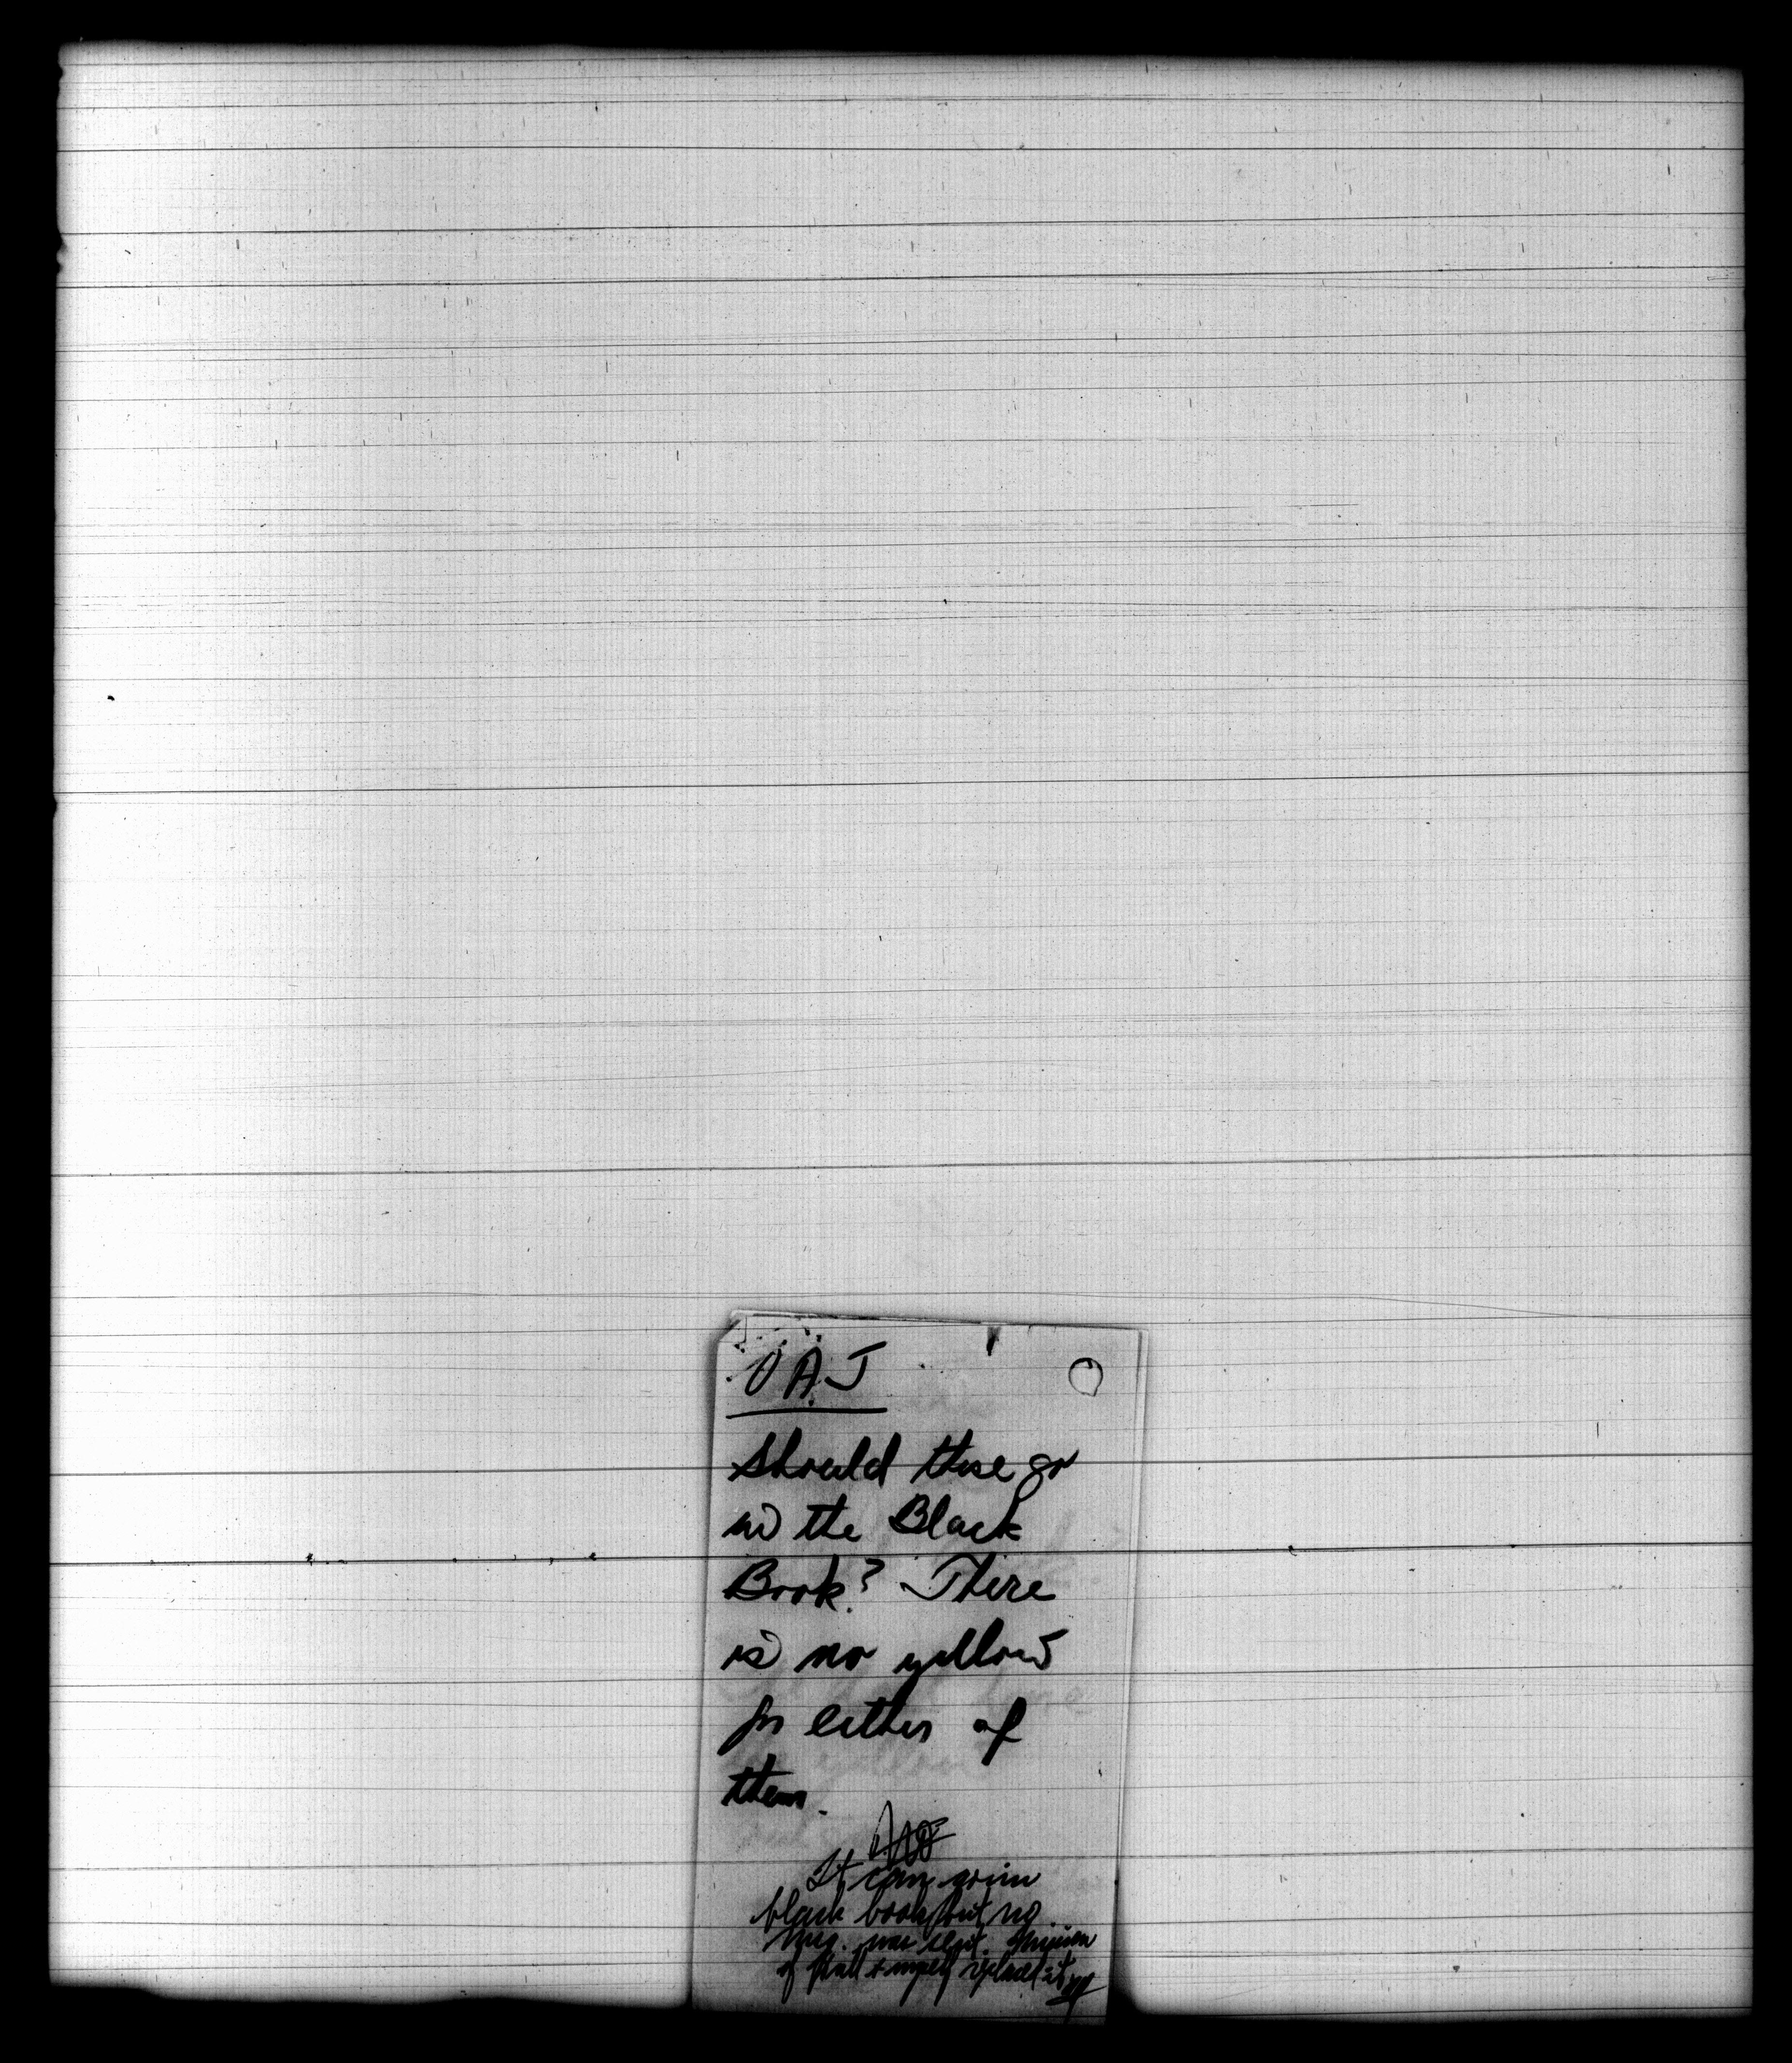 OAJ
Should these go
in the Black
Book? There
is no yellow
for either of
them.
It can go in
black book but no
was sent.
of staff & myself replaced it